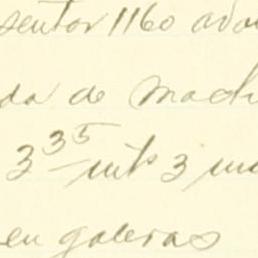 sentor 1160 ado
da de mad
3 35 mts 3 m
en galeras